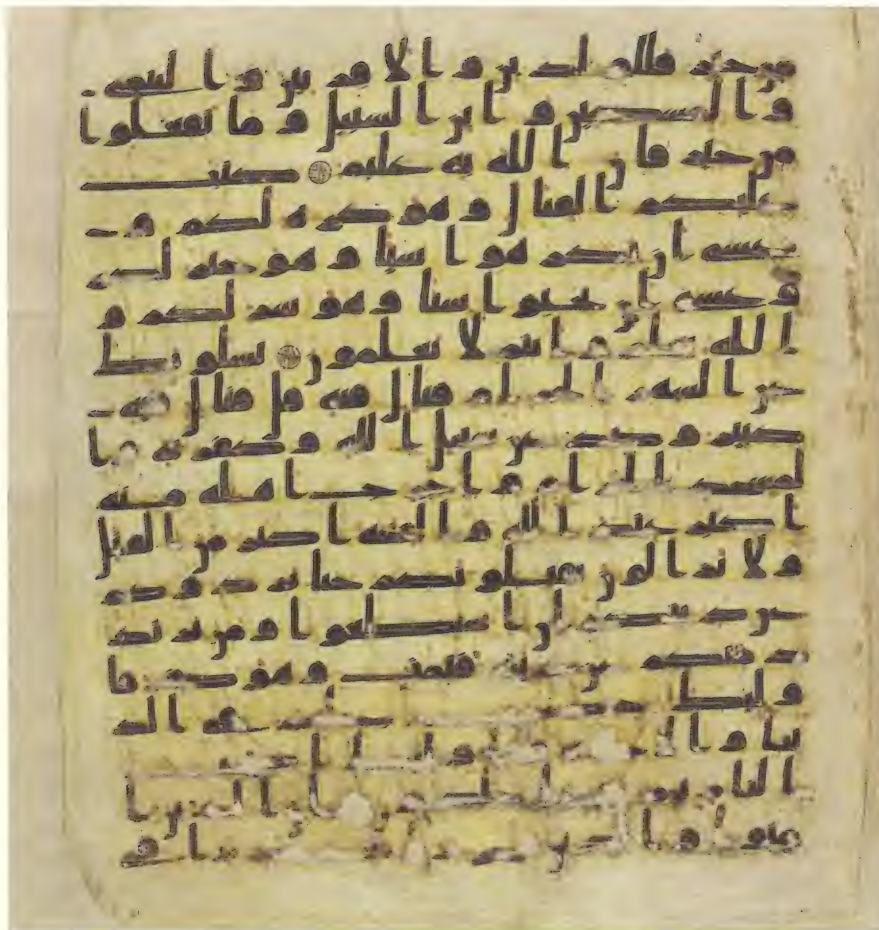 من خير فللولدين والاقربين واليتمى
والمسكين وابن السبيل وما تفعلوا
من خير فان الله به عليم كتب
عليكم القتال وهو كره لكم و
عسى ان تكرهوا شيا وهو خير لكم
وعسى ان تحبوا شيا وهو شر لكم و
الله يعلم وانتم لا تعلمون يسلونك
عن الشهر الحرام قتال فيه قل قتال فيه
كبير وصد عن سبيل الله وكفر به وا
لمسجد الحرام واخراج اهله منه
اكبر عند الله والفتنه اكبر من القتل
ولا يزالون يقتلونكم حتى يردوكم
عن دينكم ان استطعوا ومن يرتد
د منكم عن دينه فيمت وهو كافر فا
ولئك حبطت اعملهم في الد
نيا والاخره واولئك اصحب
النار هم فيها خلدون ان الذين ا
منوا والذين هاجروا وجهدوا في